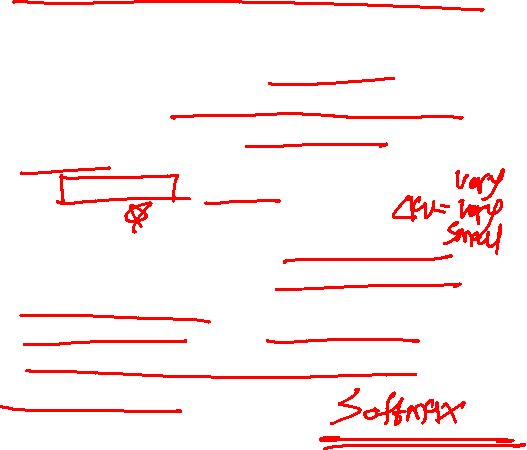 very
= very
small
Softmax